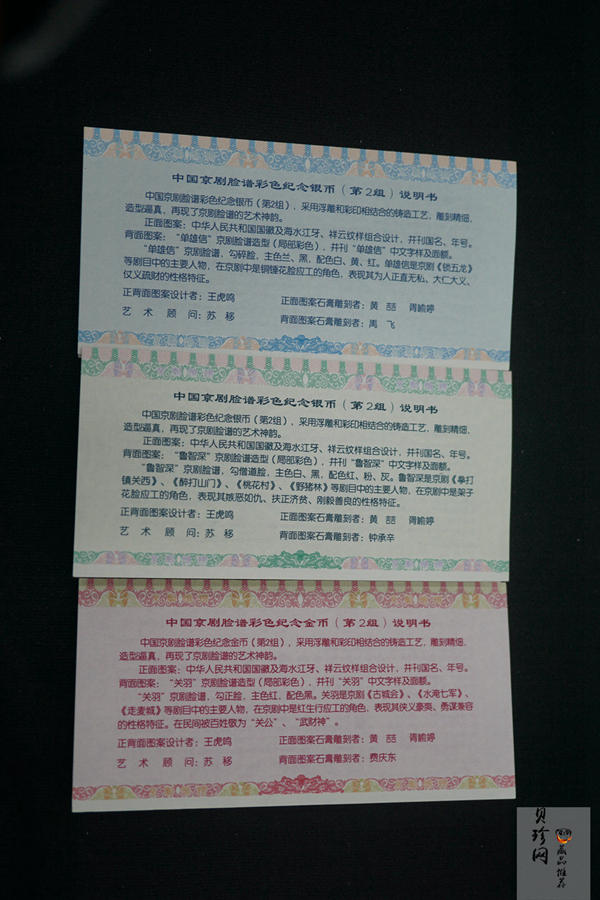 中国京剧脸谱彩色纪念银币（第2组）说明书
中国京剧脸谱彩色纪念银币（第2组），采用浮雕和彩印相结合的铸造工艺，雕刻精细，
造型逼真，再现了京剧脸谱的艺术神韵。
正面图案：中华人民共和国国徽及海水江牙、祥云纹样组合设计，并刊国名、年号。
背面图案：“单雄信”京剧脸谱造型（局部彩色），并刊“单雄信”中文字样及面额。
“单雄信”京剧脸谱，勾碎脸，主色兰、黑，配色白、黄、红。单雄信是京剧《锁五龙》
等剧目中的主要人物，在京剧中是铜锤花脸应工的角色，表现其为人正直无私、大仁大义、
仗义疏财的性格特征。
正背面图案设计者：王虎鸣 正面图案石膏雕刻者：黄 喆 胥瑜婷
艺 术 顾 问：苏 移 背面图案石膏雕刻者：禹 飞
中国京剧脸谱彩色纪念银币（第2组）说明书
中国京剧脸谱彩色纪念银币（第2组），采用浮雕和彩印相结合的铸造工艺，雕刻精细，
造型逼真，再现了京剧脸谱的艺术神韵。
正面图案：中华人民共和国国徽及海水江牙、祥云纹样组合设计，并刊国名、年号。
背面图案：“鲁智深”京剧脸谱造型（局部彩色），并刊“鲁智深”中文字样及面额。
“鲁智深”京剧脸谱，勾僧道脸，主色白、黑，配色红、粉、灰。鲁智深是京剧《拳打
镇关西》、《醉打山门》、《桃花村》、《野猪林》等剧目中的主要人物，在京剧中是架子
花脸应工的角色，表现其嫉恶如仇、扶正济贫、刚毅善良的性格特征。
正背面图案设计者：王虎鸣 正面图案石膏雕刻者：黄 喆 胥瑜婷
艺 术 顾 问：苏 移 背面图案石膏雕刻者：钟承辛
中国京剧脸谱彩色纪念金币（第2组）说明书
中国京剧脸谱彩色纪念金币（第2组），采用浮雕和彩印相结合的铸造工艺，雕刻精细，
造型逼真，再现了京剧脸谱的艺术神韵。
正面图案：中华人民共和国国徽及海水江牙、祥云纹样组合设计，并刊国名、年号。
背面图案：“关羽”京剧脸谱造型（局部彩色），并刊“关羽”中文字样及面额。
“关羽”京剧脸谱，勾正脸，主色红、配色黑。关羽是京剧《古城会》、《水淹七军》、
《走麦城》等剧目中的主要人物，在京剧中是红生行应工的角色，表现其侠义豪爽、勇谋兼容
的性格特征。在民间被百姓敬为“关公”、“武财神”。
正背面图案设计者：王虎鸣 正面图案石膏雕刻者：黄 喆 胥瑜婷
艺 术 顾 问：苏 移 背面图案石膏雕刻者：费庆东
贝珍网
藏品推荐